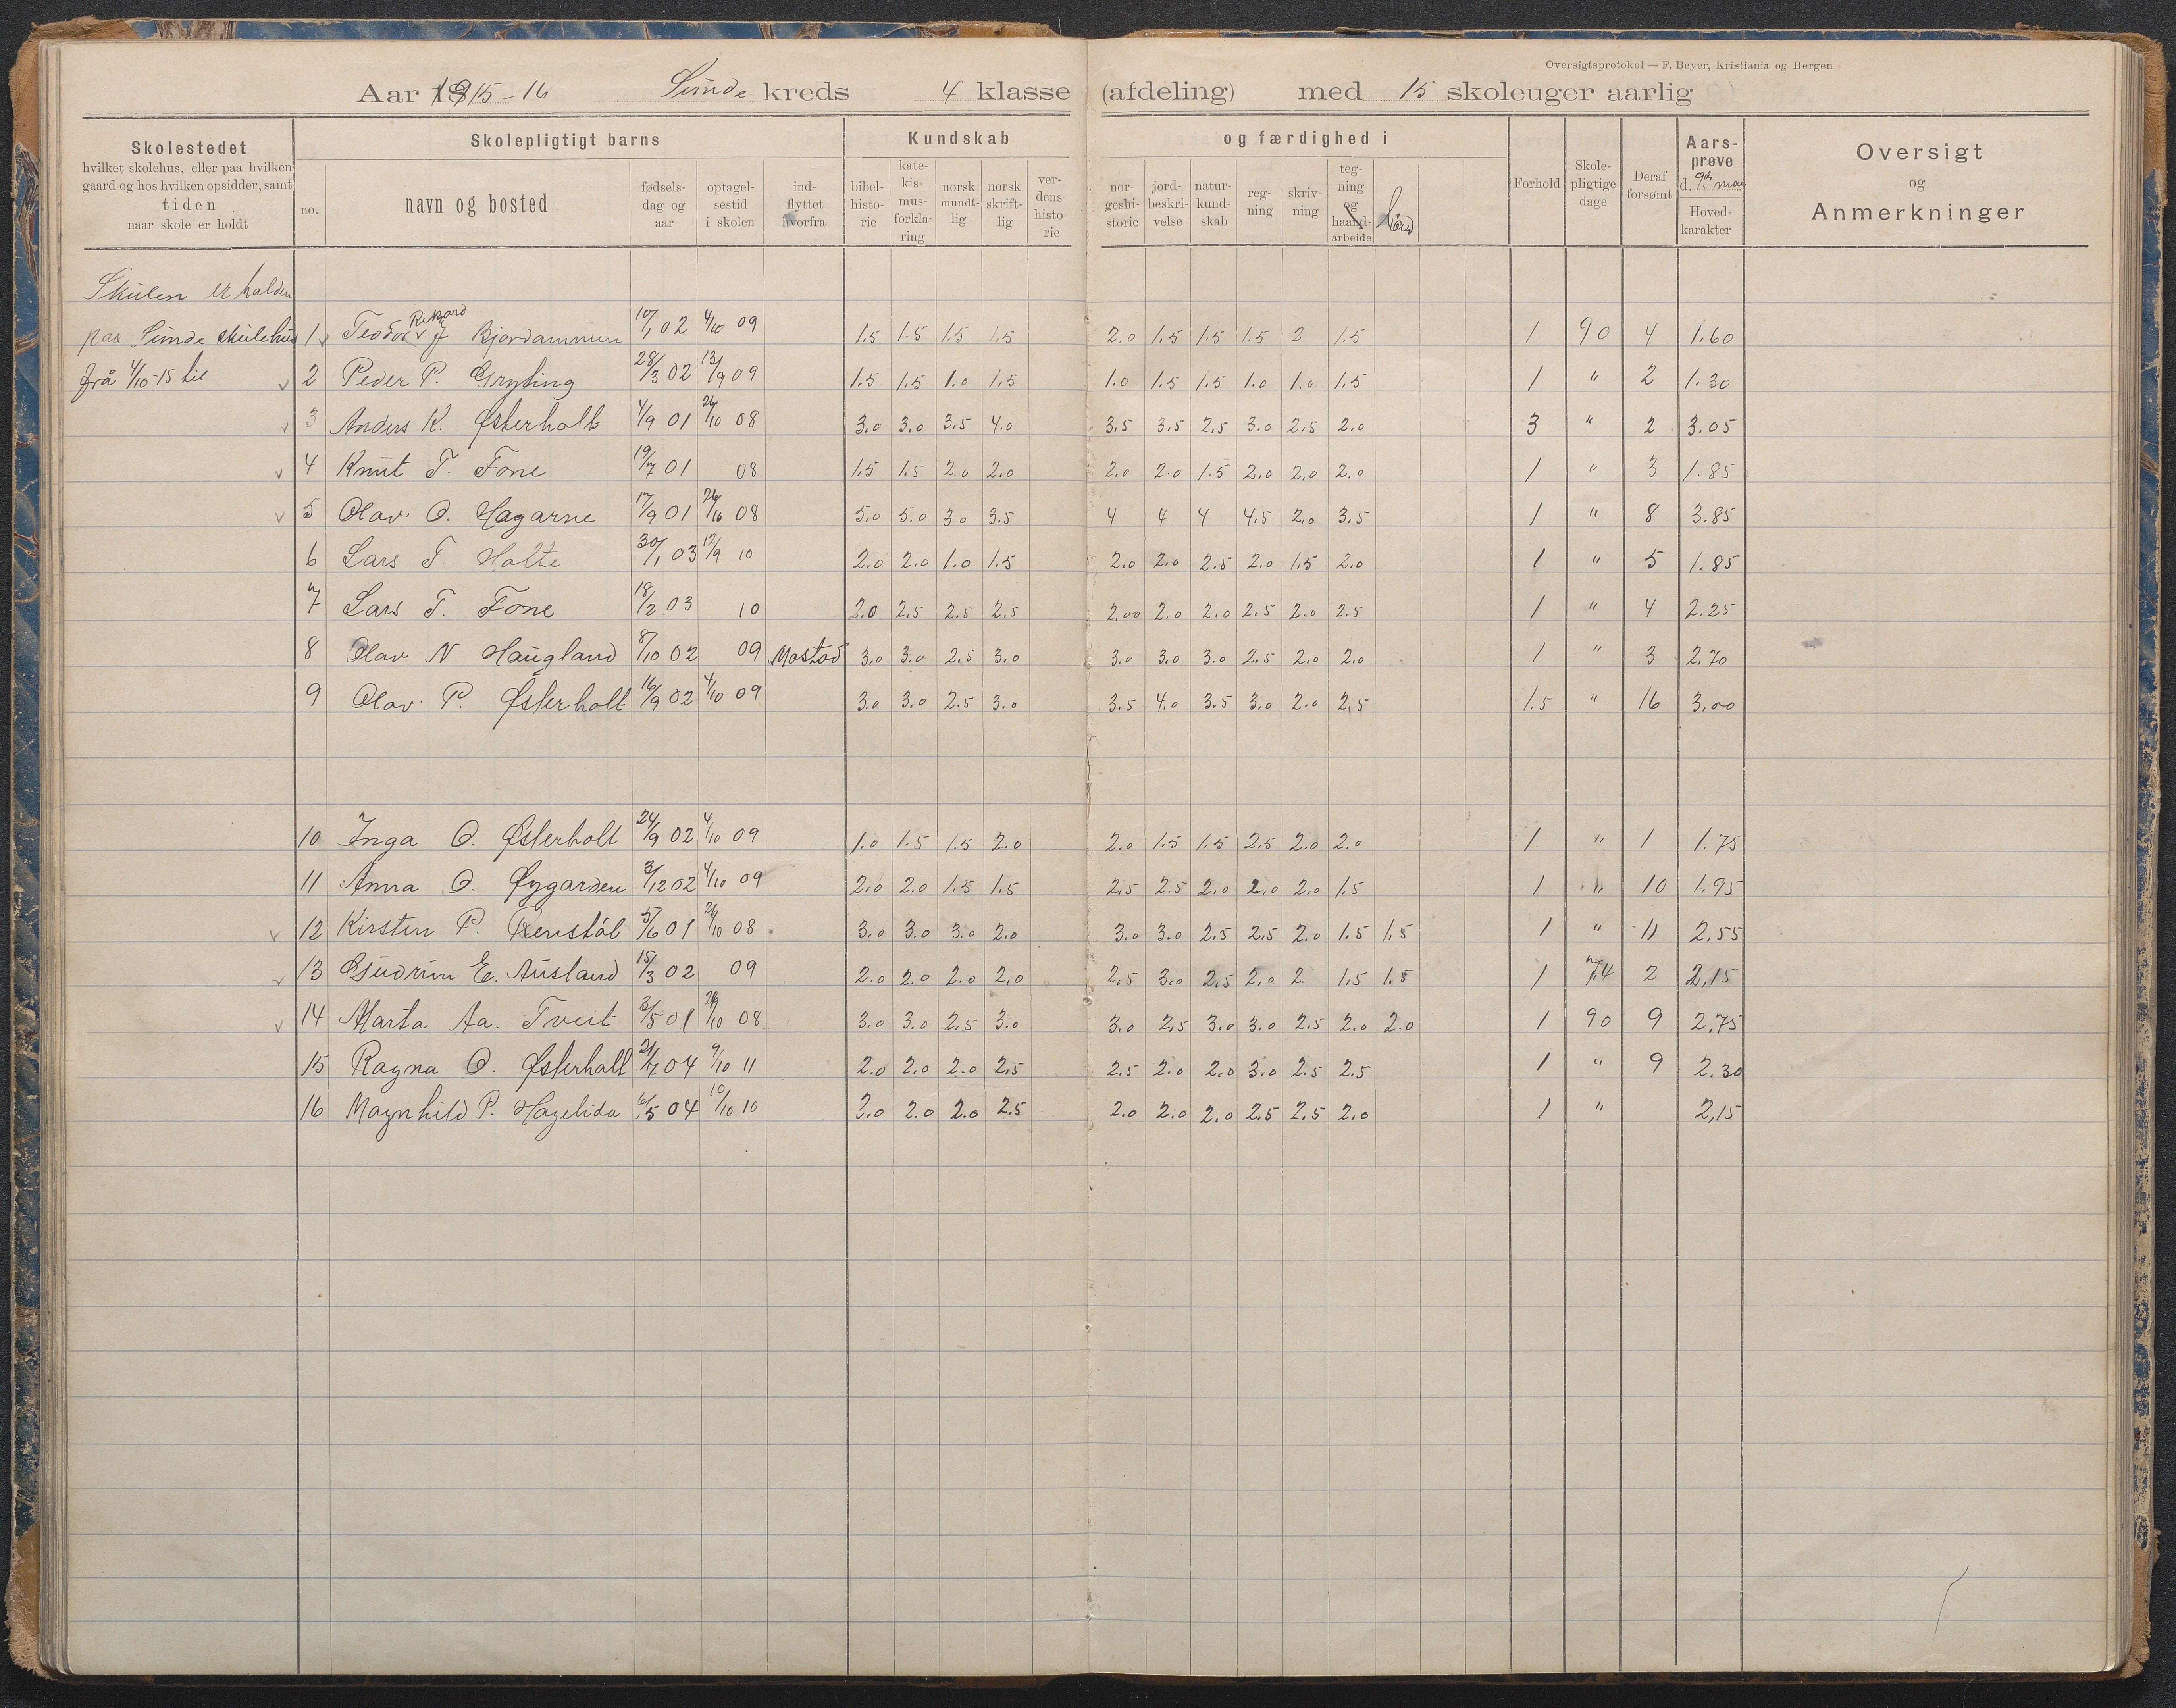 Oversigtsprotokol — F. Beyer, Kristiania og Bergen
Aar 1915-16 Sunde kreds 4 klasse (afdeling) med 15 skoleuger aarlig
Skolestedet
hvilket skolehus, eller paa hvilken
gaard og hos hvilken opsidder, samt
tiden
naar skole er holdt
Skolepligtigt barns
no.
navn og bosted
fødsels-
dag og
aar
optagel-
sestid
i skolen
ind-
flyttet
hvorfra
Kundskab
bibel-
histo-
rie
kate-
kis-
mus-
forkla-
ring
norsk
mundt-
lig
norsk
skrift-
lig
ver-
dens-
histo-
rie
og færdighed i
nor-
geshi-
storie
jord-
beskri-
velse
natur-
kund-
skab
reg-
ning
skriv-
ning
teg-
ning
og
haand-
arbeide
Forhold
Skole-
pligtige
dage
Deraf
forsømt
Aars-
prøve
d. 9de mai
Hoved-
karakter
Oversigt
og
Anmerkninger
Skulen er halden
paa Sunde skulehus
frå 4/10-15 til
1 Teodor Rikard J Bjordammen 10/1 02 4/10 09 1.5 1.5 1.5 1.5 2.0 1.5 1.5 1.5 2 1.5 1 90 4 1.60
2 Peder P. Gryting 28/3 02 13/9 09 1.5 1.5 1.0 1.5 1.0 1.5 1.5 1.0 1.0 1.5 1 " 2 1.30
3 Anders K. Østerholt 4/9 01 26/10 08 3.0 3.0 3.5 4.0 3.5 3.5 2.5 3.0 2.5 2.0 3 " 2 3.05
4 Knut T. Fone 19/7 01 08 1.5 1.5 2.0 2.0 2.0 2.0 1.5 2.0 2.0 2.0 1 " 3 1.85
5 Olav O. Hagarne 17/9 01 26/10 08 5.0 5.0 3.0 3.5 4 4 4 4.5 2.0 3.5 1 " 8 3.85
6 Lars T. Holte 30/1 03 12/9 10 2.0 2.0 1.0 1.5 2.0 2.0 2.5 2.0 1.5 2.0 1 " 5 1.85
7 Lars T. Fone 18/2 03 10 2.0 2.5 2.5 2.5 2.00 2.0 2.0 2.5 2.0 2.5 1 " 4 2.25
8 Olav N. Haugland 8/10 02 09 Mostad 3.0 3.0 2.5 3.0 3.0 3.0 3.0 2.5 2.0 2.0 1 " 3 2.70
9 Olav P. Østerholt 16/9 02 4/10 09 3.0 3.0 2.5 3.0 3.5 4.0 3.5 3.0 2.0 2.5 1.5 " 16 3.00
10 Inga O. Østerholt 24/9 02 4/10 09 1.0 1.5 1.5 2.0 2.0 1.5 1.5 2.5 2.0 2.0 1 " 1 1.75
11 Anna O. Øygarden 3/12 02 4/10 09 2.0 2.0 1.5 1.5 2.5 2.5 2.0 2.0 2.0 1.5 1 " 10 1.95
12 Kirsten P. Renstøl 5/6 01 26/10 08 3.0 3.0 3.0 2.0 3.0 3.0 2.5 2.5 2.0 1.5 1.5 1 " 11 2.55
13 Gudrun E. Ausland 15/3 02 09 2.0 2.0 2.0 2.0 2.5 3.0 2.5 2.0 2. 1.5 1.5 1 74 2 2,15
14 Marta Aa. Tveit 3/5 01 26/10 08 3.0 3.0 2.5 3.0 3.0 2.5 3.0 3.0 2.5 2.0 2.0 1 90 9 2.75
15 Ragna O. Østerholt 21/7 04 9/10 11 2.0 2.0 2.0 2.5 2.5 2.0 2.0 3.0 2.5 2.5 1 " 9 2.30
16 Magnhild P. Hagelida /5 04 10/10 10 2.0 2.0 2.0 2.5 2.0 2.0 2.0 2.5 2.5 2.0 1 " 2,15